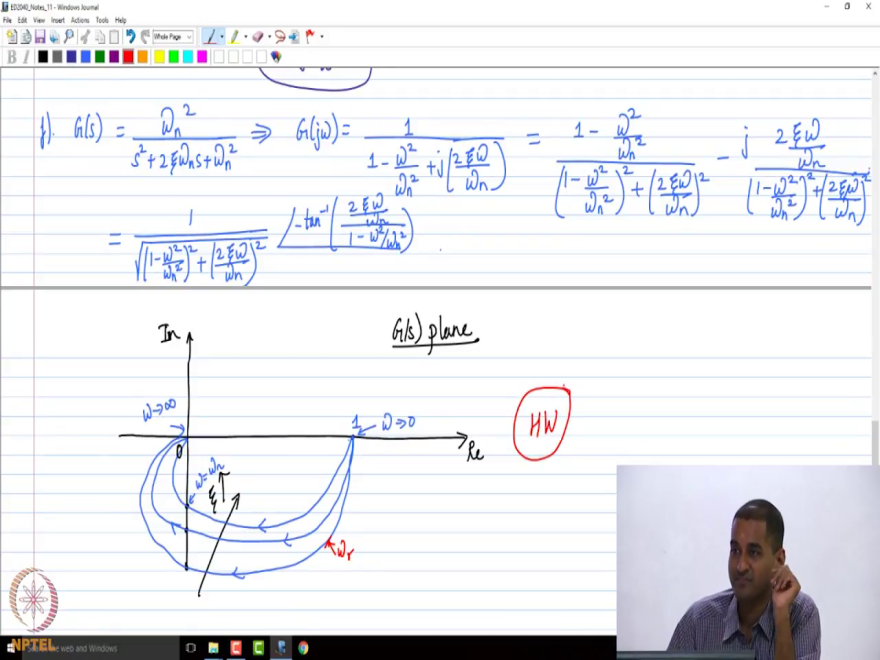 ED2040_Notes_11 - Windows Journal
File Edit View Insert Actions Tools Help
Whole Page
B I
f). G(s) = ωn² / (s² + 2ξωns + ωn²) ⇒ G(jω) = 1 / (1 - ω²/ωn² + j(2ξω/ωn)) = (1 - ω²/ωn²) / ((1 - ω²/ωn²)² + (2ξω/ωn)²) - j (2ξω/ωn) / ((1 - ω²/ωn²)² + (2ξω/ωn)²)
= 1 / √((1 - ω²/ωn²)² + (2ξω/ωn)²) ∠-tan⁻¹((2ξω/ωn) / (1 - ω²/ωn²))
Im
G(s) plane
ω→∞
1
ω→0
HW
0
Re
ω=ωn
ξ↑
ωr
NPTEL
the web and Windows